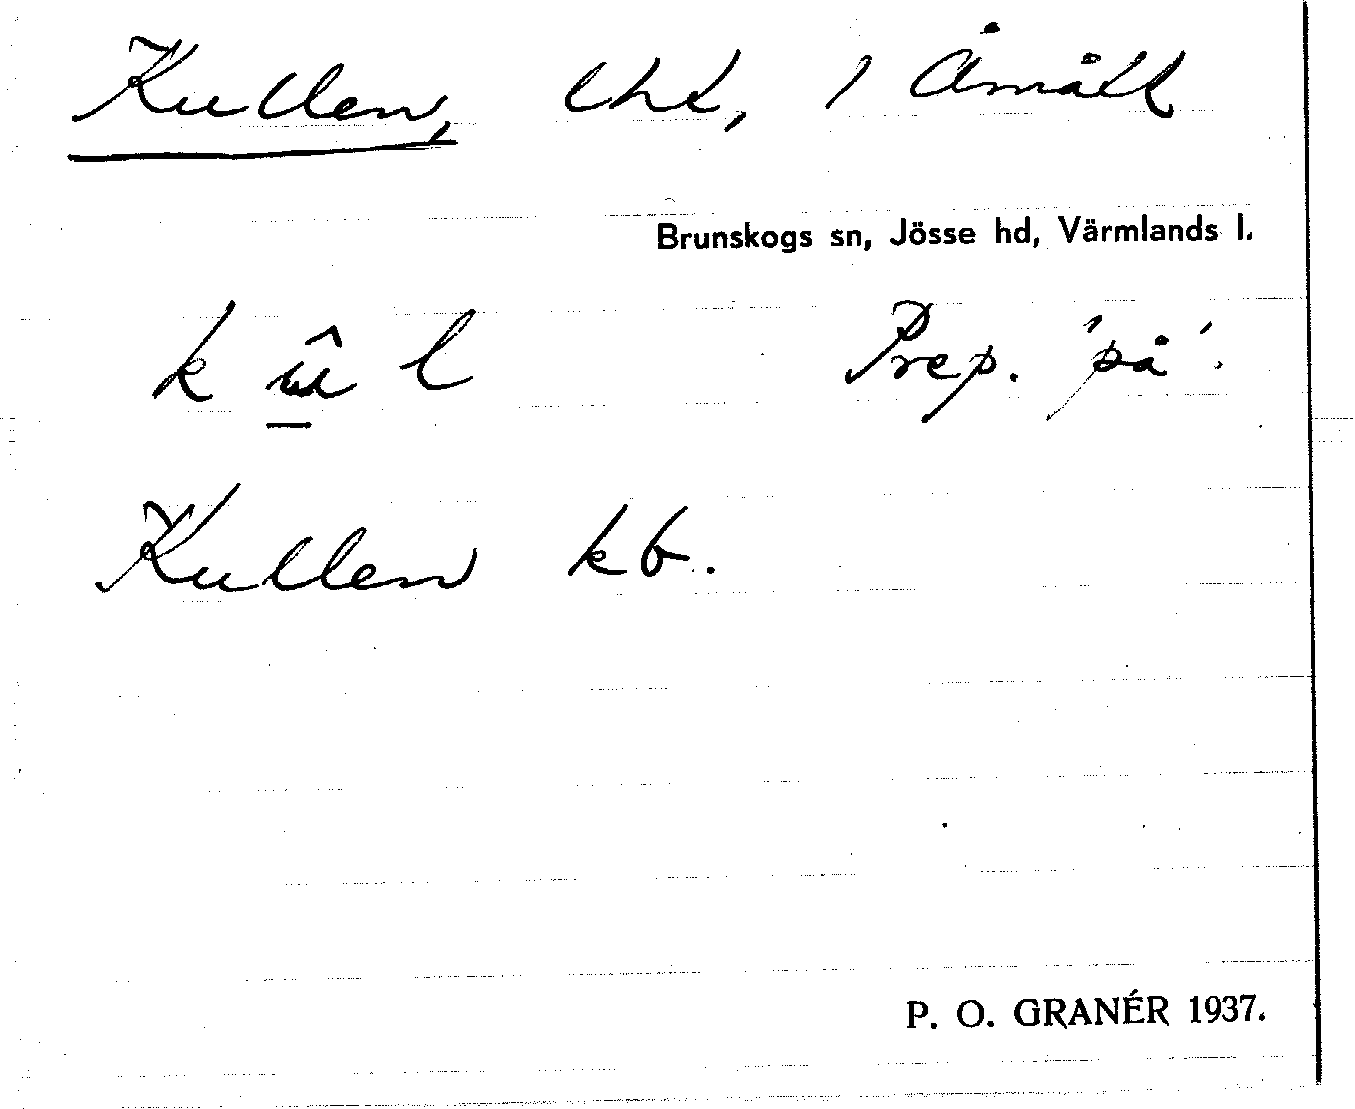 Kullen, lht, / Åmått
Brunskogs sn, Jösse hd, Värmlands l.
k û l Prep. 'på'.
Kullen kb.
P. O. GRANÉR 1937.